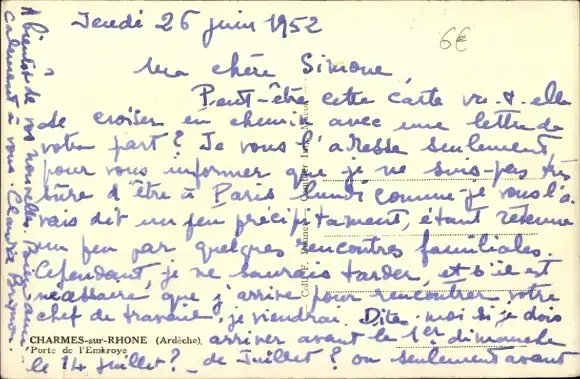 Jeudi 26 juin 1952
6€
Ma chère Simone,
Peut-être cette carte va-t-elle
se croiser en chemin avec une lettre de
votre part? Je vous l'adresse seulement
pour vous informer que je ne suis pas très
sûre d'être à Paris lundi comme je vous l'a-
vais dit un peu précipitamment, étant retenue
un peu par quelques rencontres familiales.
Cependant, je ne saurais tarder, et s'il est
nécessaire que j'arrive pour rencontrer votre
chef de travail, je viendrai. Dites-moi si je dois
CHARMES-sur-RHONE (Ardèche)
Porte de l'Embroye
arriver avant le 1er dimanche
de Juillet? ou seulement avant
le 14 Juillet?
A bientôt de vos nouvelles.
calement à vous.